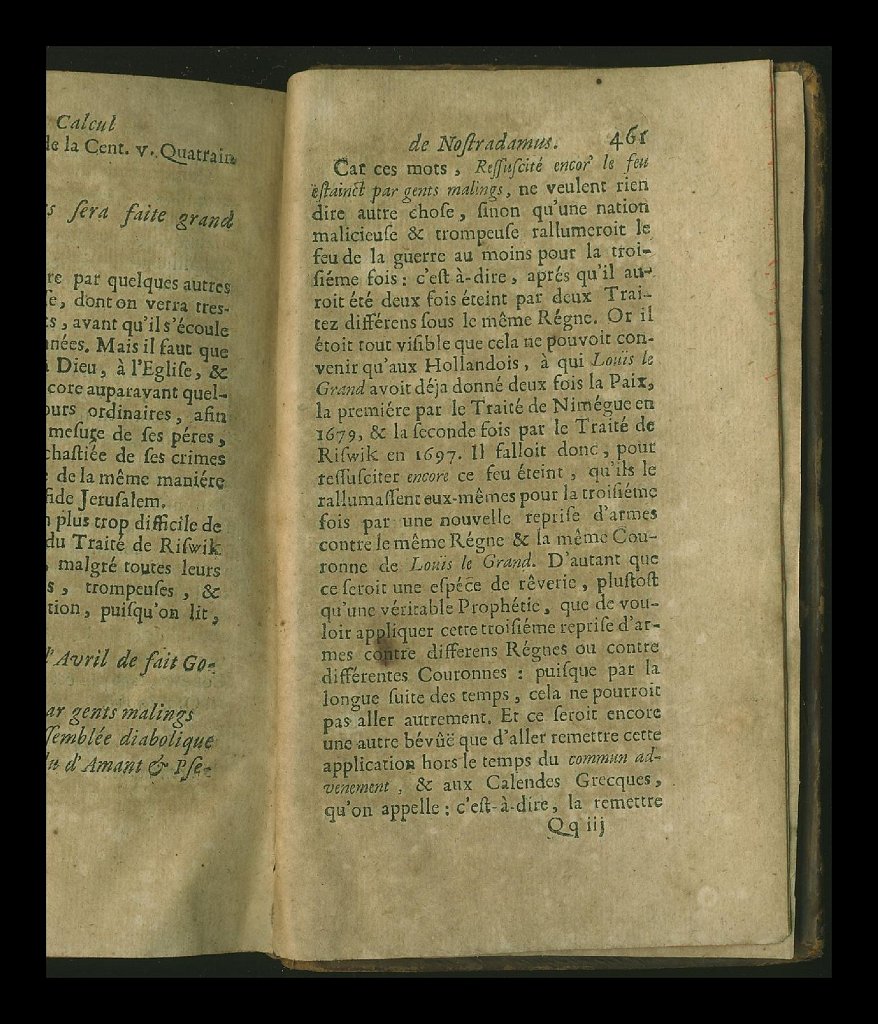 Calcul
de la Cent. v. Quatrain
sera faite grand
par quelques autres
dont on verra tres-
, avant qu'il s'écoule
nées. Mais il faut que
Dieu, à l'Eglise, &
core auparavant quel-
ours ordinaires, afin
mesure de ses péres,
chastiée de ses crimes
de la même maniére
de Jerusalem.
plus trop difficile de
du Traité de Riswik
malgré toutes leurs
s, trompeuses, &
tion, puisqu'on lit,
d'Avril de fait Go-
ar gents malings
semblée diabolique
d'Amant & Pse-
de Nostradamus. 461
Car ces mots, Ressuscité encor le feu
estainct par gents malings, ne veulent rien
dire autre chose, sinon qu'une nation
malicieuse & trompeuse rallumeroit le
feu de la guerre au moins pour la troi-
siéme fois : c'est à-dire, aprés qu'il au-
roit été deux fois éteint par deux Trai-
tez différens sous le même Régne. Or il
étoit tout visible que cela ne pouvoit con-
venir qu'aux Hollandois, à qui Louis le
Grand avoit déja donné deux fois la Paix,
la premiére par le Traité de Nimégue en
1679, & la seconde fois par le Traité de
Riswik en 1697. Il falloit donc, pour
ressusciter encore ce feu éteint, qu'ils le
rallumassent eux-mêmes pour la troisiéme
fois par une nouvelle reprise d'armes
contre le même Régne & la même Cou-
ronne de Louis le Grand. D'autant que
ce seroit une espéce de rêverie, plustost
qu'une véritable Prophétie, que de vou-
loir appliquer cette troisiéme reprise d'ar-
mes contre differens Régnes ou contre
différentes Couronnes : puisque par la
longue suite des temps, cela ne pourroit
pas aller autrement. Et ce seroit encore
une autre bévûë que d'aller remettre cette
application hors le temps du commun ad-
venement, & aux Calendes Grecques,
qu'on appelle : c'est-à-dire, la remettre
Qq iij